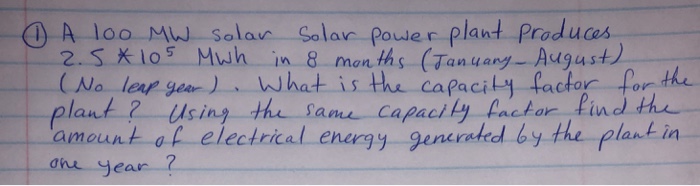 ① A 100 MW solar Solar power plant produces
2.5 *10⁵ Mwh in 8 months (January-August)
(No leap year). What is the capacity factor for the
plant? Using the same capacity factor find the
amount of electrical energy generated by the plant in
one year ?